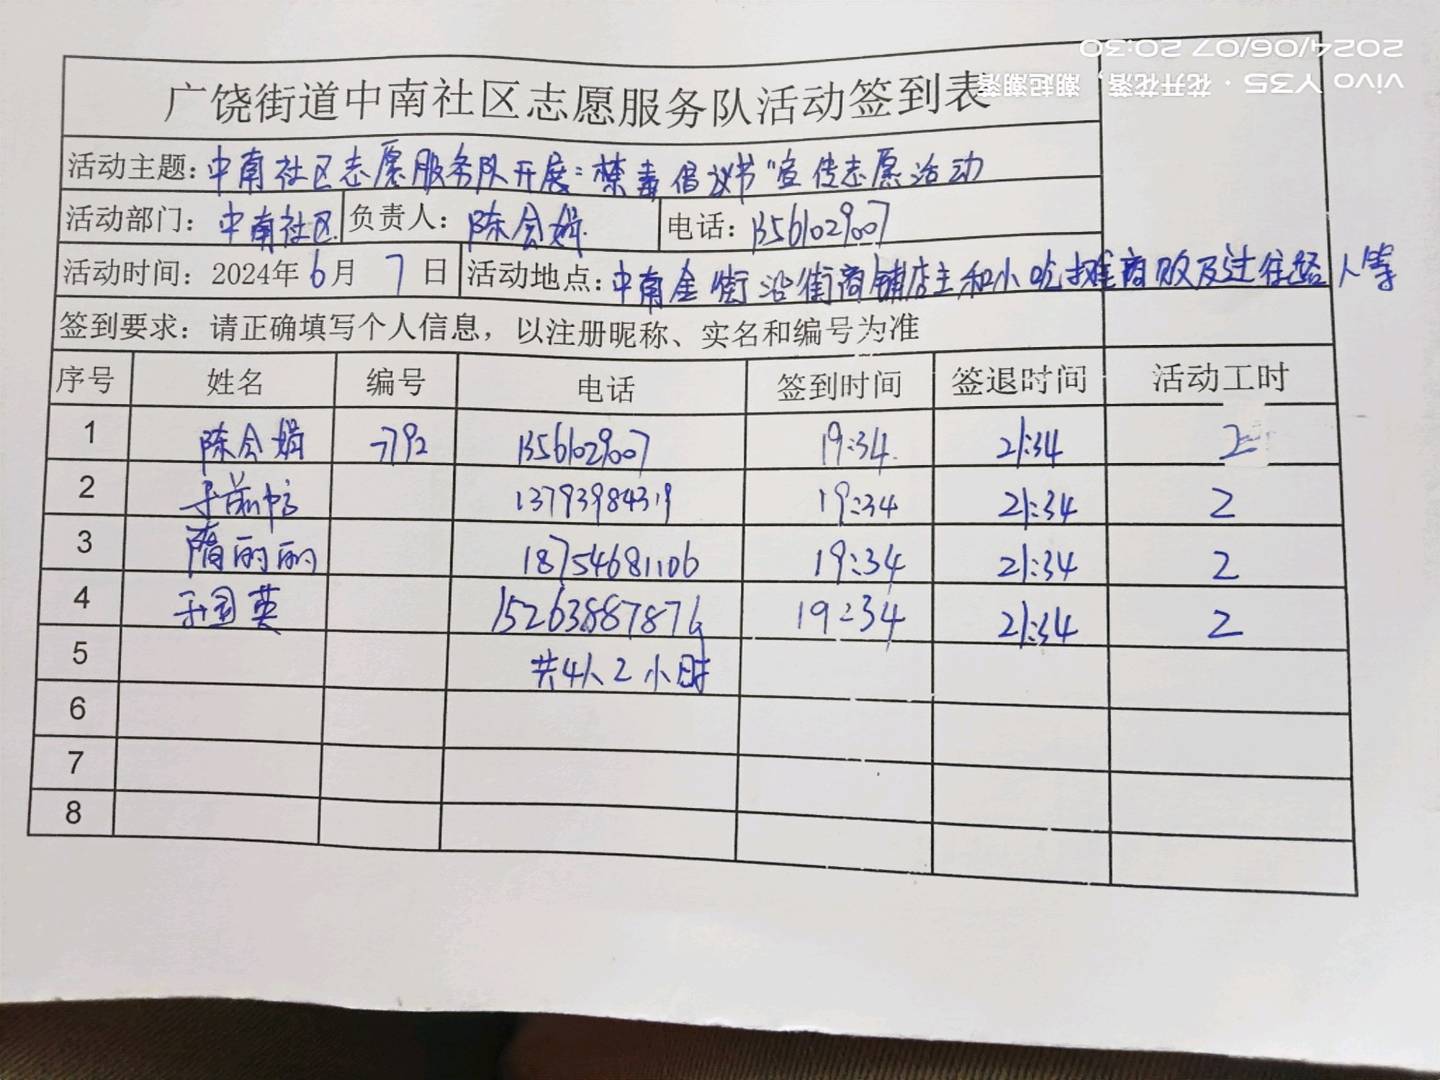 2024/06/07 20:30
vivo Y35 · 花开花落，潮起潮落
广饶街道中南社区志愿服务队活动签到表
活动主题：中南社区志愿服务队开展"禁毒倡议书"宣传志愿活动
活动部门：中南社区 负责人：陈会娟 电话：
活动时间：2024年6月7日 活动地点：中南金街沿街商铺店主和小吃摊商贩及过往经人等
签到要求：请正确填写个人信息，以注册昵称、实名和编号为准
序号 姓名 编号 电话 签到时间 签退时间 活动工时
1 陈会娟 7792 19:34 21:34 2
2 13793984319 19:34 21:34 2
3 隋丽丽 18754681106 19:34 21:34 2
4 于国英 15263887876 19:34 21:34 2
5 共4人2小时
6
7
8